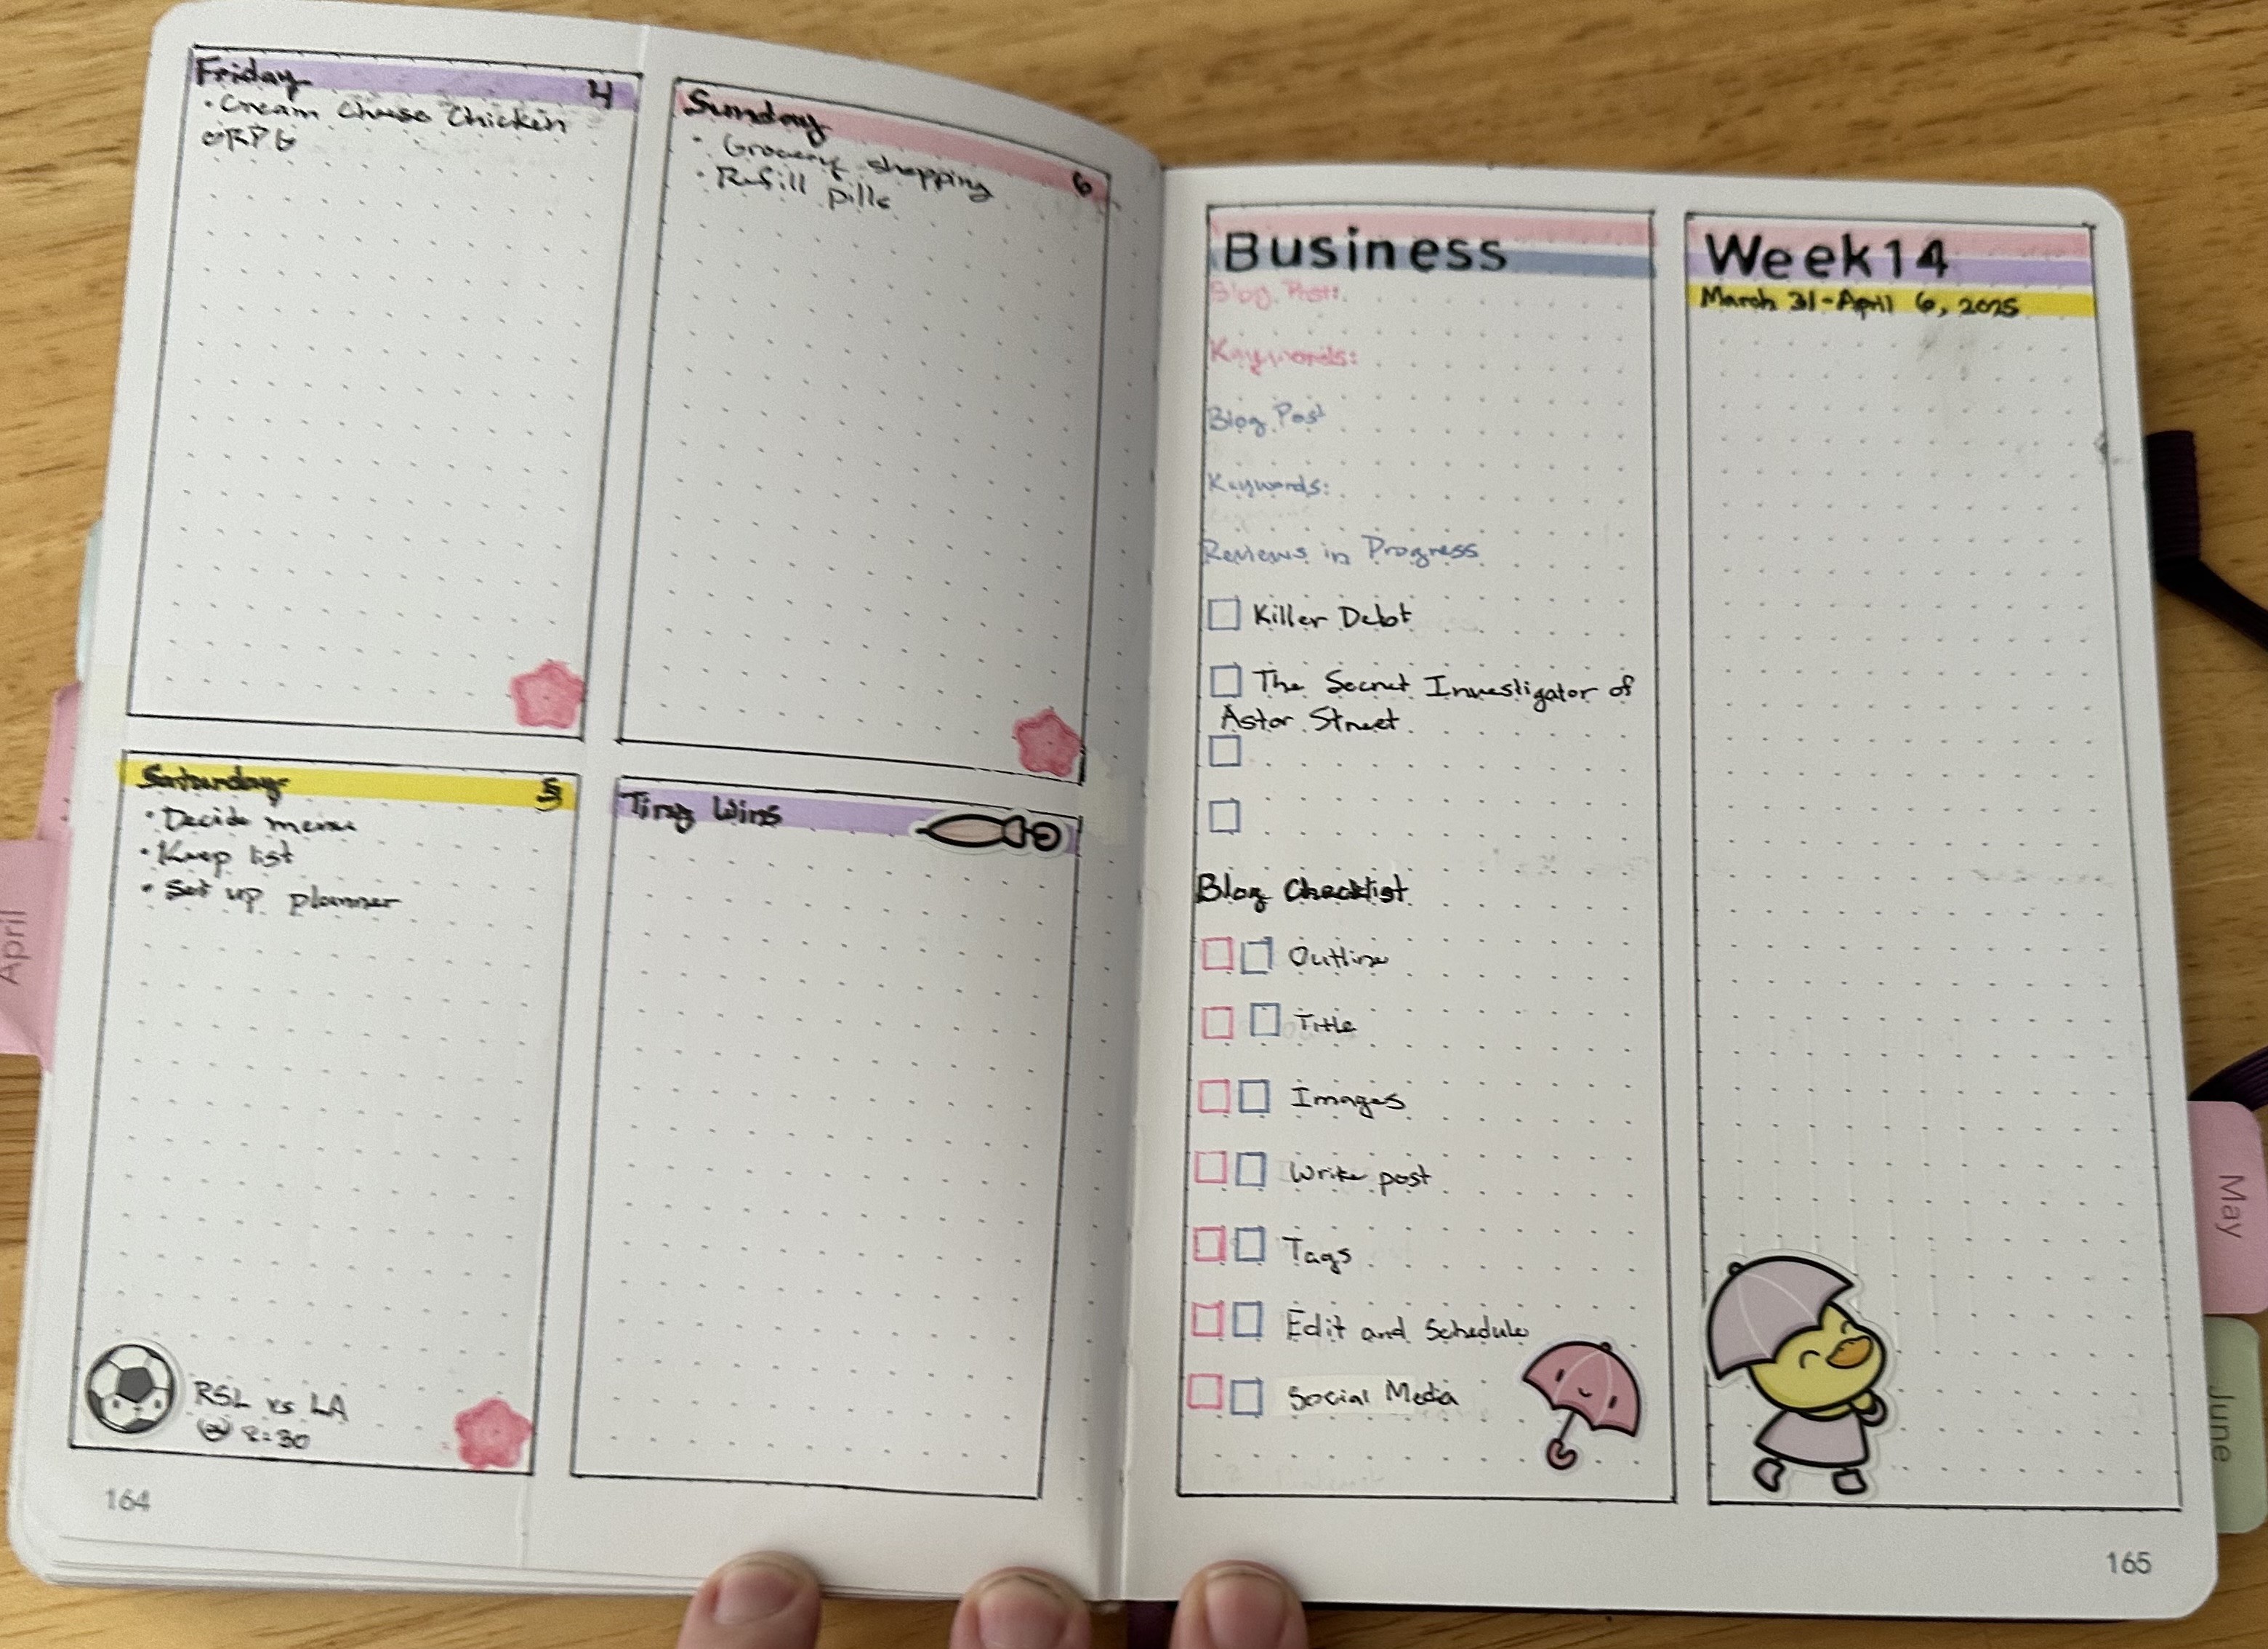 Friday 4
• Cream Cheese Chicken
o RPG
Saturday 5
• Decide menu
• Keep list
• Set up planner
RSL vs LA
@ 8:30
164
Sunday 6
• Grocery shopping
• Refill pills
Tiny Wins
Business
Blog Post:
Keywords:
Blog Post
Keywords:
Reviews in Progress
Killer Debt
The Secret Investigator of
Astor Street
Blog Checklist
Outline
Title
Images
Write post
Tags
Edit and Schedule
Social Media
Week14
March 31-April 6, 2025
165
April
May
June